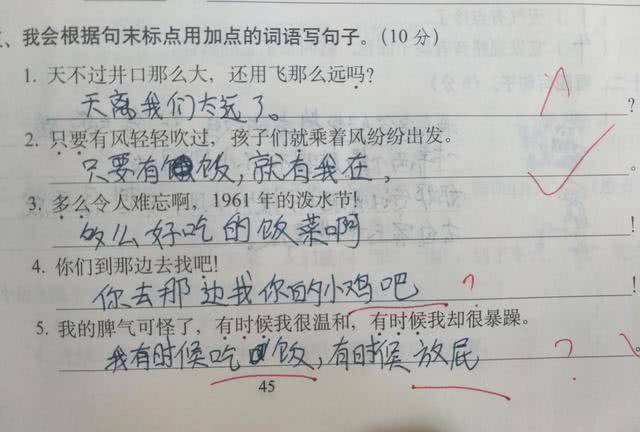 、我会根据句末标点用加点的词语写句子。(10分)
1. 天不过井口那么大，还用飞那么远吗?
天离我们太远了。?
2. 只要有风轻轻吹过，孩子们就乘着风纷纷出发。
只要有饭，就有我在，。
3. 多么令人难忘啊，1961年的泼水节!
多么好吃的饭菜啊!
4. 你们到那边去找吧!
你去那边找你的小鸡吧?!
5. 我的脾气可怪了，有时候我很温和，有时候我却很暴躁。
我有时候吃饭，有时候放屁?。
45